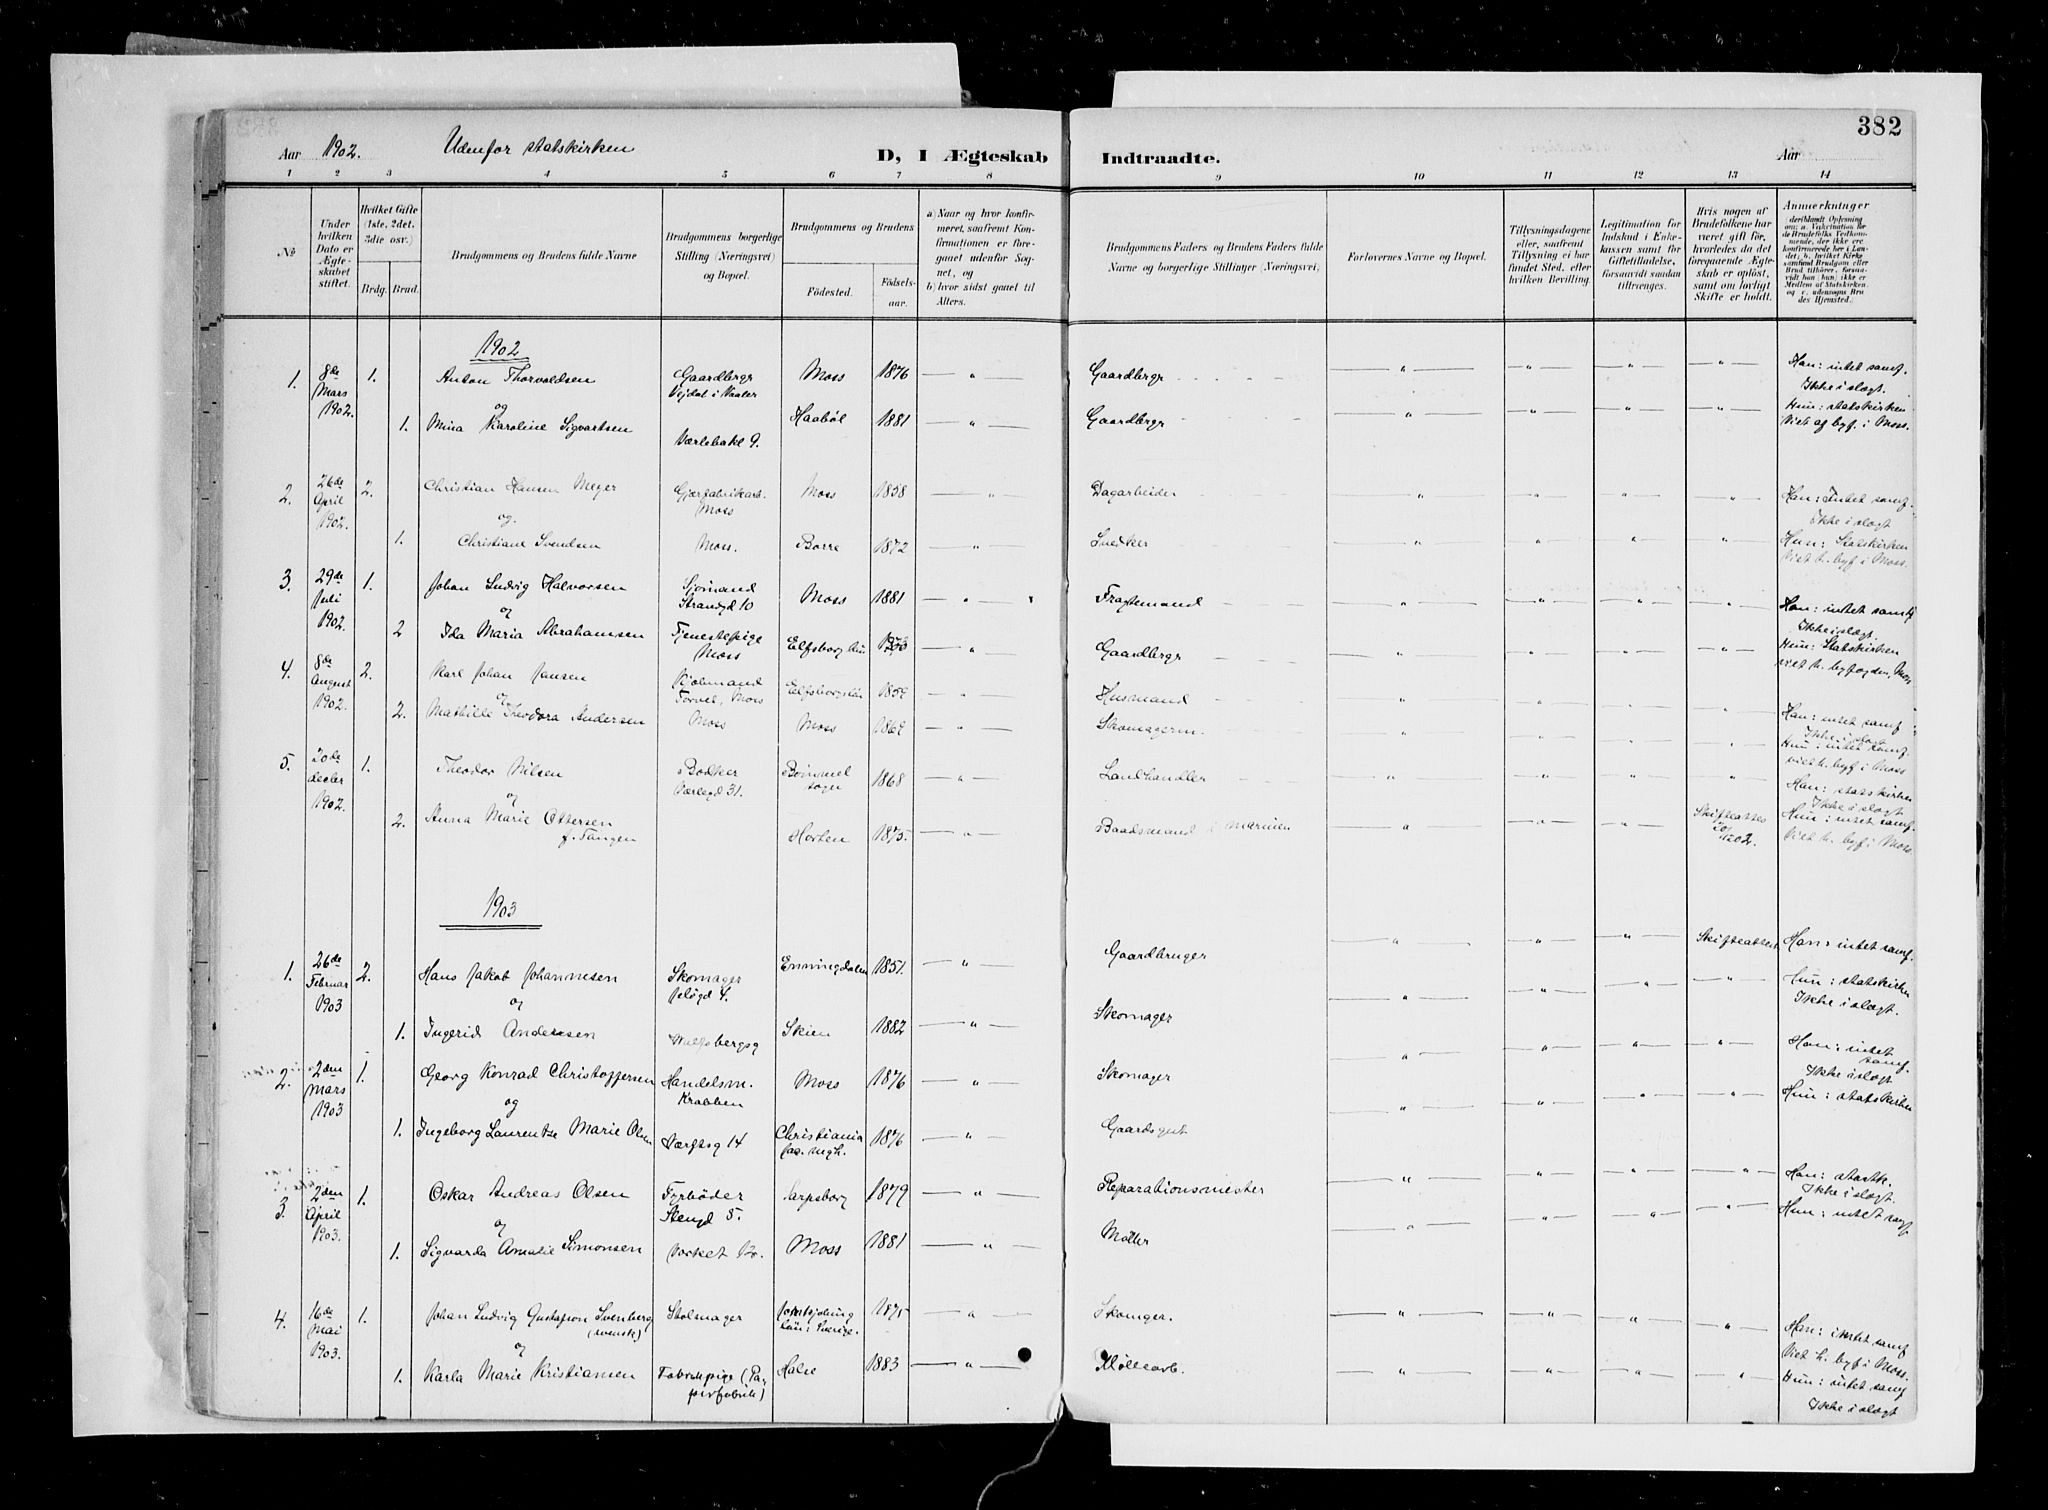 382
Aar 1902. Udenfor statskirken D, I Ægteskab Indtraadte. Aar
1 2 3 4 5 6 7 8 9 10 11 12 13 14
№
Under hvilken Dato er Ægteskabet stiftet.
Hvilket Gifte (1ste, 2det, 3die osv.)
Brdg. Brud.
Brudgommens og Brudens fulde Navne
Brudgommens borgerlige Stilling (Næringsvei) og Bopæl.
Brudgommens og Brudens
Födested. Födselsaar.
a) Naar og hvor konfirmeret, saafremt Konfirmationen er foregaaet udenfor Sognet, og
b) hvor sidst gaaet til Alters.
Brudgommens Faders og Brudens Faders fulde Navne og borgerlige Stillinger (Næringsvei)
Forlovernes Navne og Bopæl.
Tillysningsdagene eller, saafremt Tillysning ei har fundet Sted, efter hvilken Bevilling.
Legitimation for Indskud i Enkekassen samt for Giftetilladelse, forsaavidt saadan tiltrænges.
Hvis nogen af Brudefolkene har været gift før, hvorledes da det foregaaende Ægteskab er opløst, samt om lovligt Skifte er holdt.
Anmerkninger
(deriblandt Oplysning om: a. Vakcination for de Brudefolks Vedkommende, der ikke ere konfirmerede her i Landet; b. hvilket Kirkesamfund Brudgom eller Brud tilhører, forsaavidt han (hun) ikke er Medlem af Statskirken. og c. udensogns Brudes Hjemsted.
1902
1. 8de Mars 1902. 1. Anton Thorvaldsen Gaardbergr Vejdal i Vaaler Moss 1876 — " — Gaardbergr — " — — " — — " — — " — Han: intet samf. Ikke i slægt.
og
1. Mina Karoline Sigvartsen Værlebakk 9. Haabøl 1881 — " — Gaardbergr — " — — " — — " — — " — Hun: statskirken Viet af byf. i Moss.
2. 26de April 1902. 2. Christian Hansen Meyer Gjærfabrikarb. Moss Moss 1858 — " — Dagarbeider — " — — " — — " — — " — Han: Intet samf. Ikke i slægt
og.
1. Christiane Svendsen Moss. Borre 1872 — " — Snedker — " — — " — — " — — " — Hun: Statskirken Viet h. byf i Moss.
3. 29de Juli 1902. 1. Johan Ludvig Halvorsen Sjømand Strandgd 10 Moss 1881 — " — Fragtemand — " — — " — — " — — " — Han: intet samf Ikke i slægt.
og
2 Ida Maria Abrahamsen Tjenestepige Moss Elfsborg län — " — Gaardbergr — " — — " — — " — — " — Hun: Statskirken viet h. byfogden, Moss
4. 8de August 1902. 2. Karl Johan Jansen Moss Elfsborgslän 1859 — " — Husmand — " — — " — — " — — " — Han: intet samf Ikke i slægt
og
2. Mathilde Theodora Andersen Moss Moss 1869 — " — Skomagerm. — " — — " — — " — — " — Hun: intet samf. viet h. byf i Moss
5. 20de decbr 1902. 1. Theodor Nilsen Bødker Værlegd 31. 1868 — " — Landhandler — " — — " — — " — — " — Han: statskirken Ikke i slægt
og
2. Anna Marie Ottersen f. Tangen Horten 1875. — " — Baadsmand i Marinen — " — — " — — " — Skifteattest Hun: intet samf. Viet h. byf i Moss.
1903
1. 26de Februar 1903 2. Hans Jakob Johannesen Skomager Enningdalen 1851. — " — Gaardbruger — " — — " — — " — Skifteattest Han: intet samf.
og
1. Ingerid Andersen Skien 1882 — " — Skomager — " — — " — — " — — " — Hun: statskirken Ikke i slægt.
2. 2den Mars 1903 1. Georg Konrad Christoffersen Handelsm. Krabben Moss 1876 — " — Skomager — " — — " — — " — — " — Han: intet samf. Ikke i slægt
og
1. Ingeborg Laurentze Marie Olsen Værftsg 14 Christiania 1876 — " — Gaardsgut — " — — " — — " — — " — Hun: statskirken
3. 2den April 1903. 1. Oskar Andreas Olsen Fyrbøder Stengd 5. Sarpsborg 1879 — " — Reparationsmester — " — — " — — " — — " — Han: statsk. Ikke i slægt.
og
1. Sigvarda Amalie Simonsen Moss 1881 — " — Møller — " — — " — — " — — " — Hun: intet samf
4. 16de Mai 1903. 1. Johan Ludvig Gustafson Svenberg (svensk) Stolmager Län: Sverige. 1875 — " — Skomager. — " — — " — — " — — " — Han: intet samf Viet h. byf i Moss.
og
1. Karla Marie Kristiansen Fabrikpige (Papirfabrik) Halse 1883 — " — Møllearb. — " — — " — — " — — " — Hun: intet samf Ikke i slægt